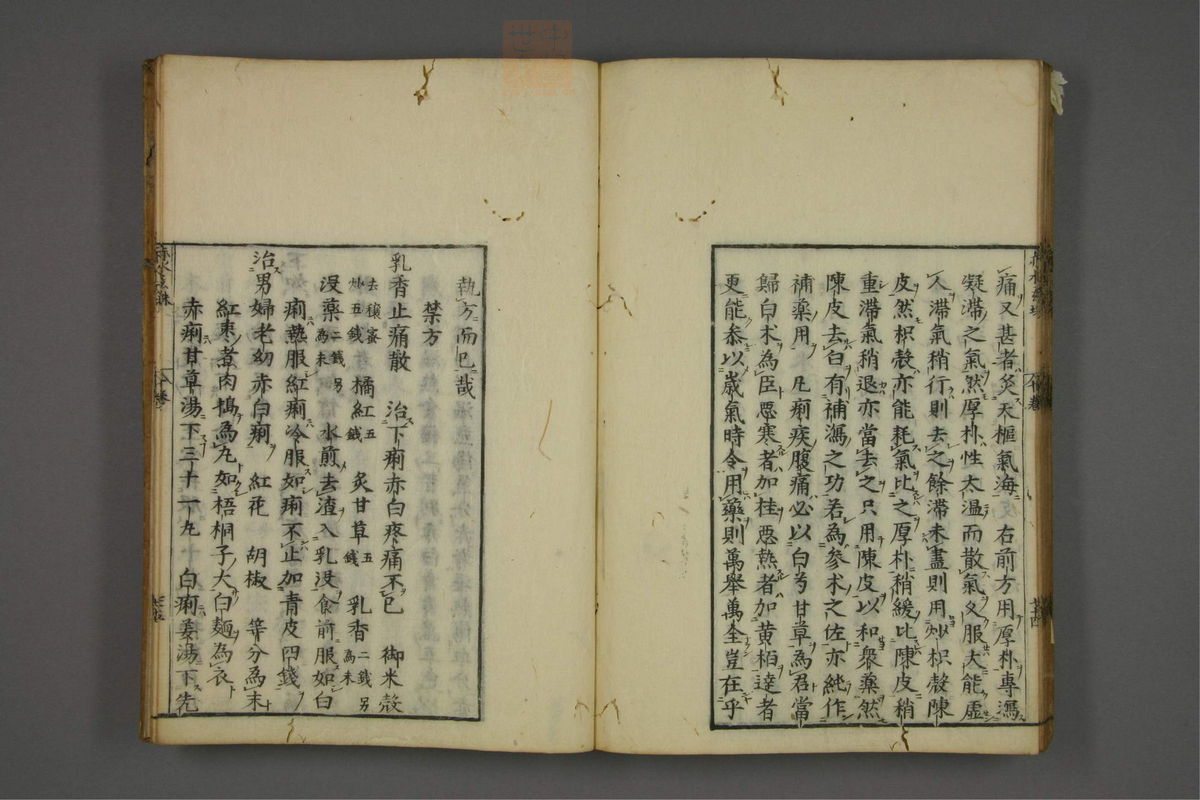 痛又甚者灸天樞氣海右前方用厚朴專瀉
凝滯之氣然厚朴性大温而散氣久服大能虚
人滯氣稍行則去之餘滯未盡則用炒枳殻陳
皮然枳殻亦能耗氣比之厚朴稍緩比陳皮稍
重滯氣稍退亦當去之只用陳皮以和衆藥然
陳皮去白有補瀉之功若為参术之佐亦純作
補藥用凡痢疾腹痛必以白芍甘草為君當
歸白术為臣悪寒者加桂悪熱者加黄栢達者
更能参以歳氣時令用藥則萬舉萬全豈在乎
執方而已哉
禁方
乳香止痛散 治下痢赤白疼痛不已 御米殻
去穣蜜炒五錢 橘紅五錢 炙甘草五錢 乳香二錢另為末
没藥二錢另為末 水煎去渣入乳没食前服如白
痢熱服紅痢冷服如痢不止加青皮四錢
治男婦老幼赤白痢 紅花 胡椒 等分為末
紅棗煮肉搗為丸如梧桐子大白麺為衣
赤痢甘草湯下三十一丸 白痢姜湯下先